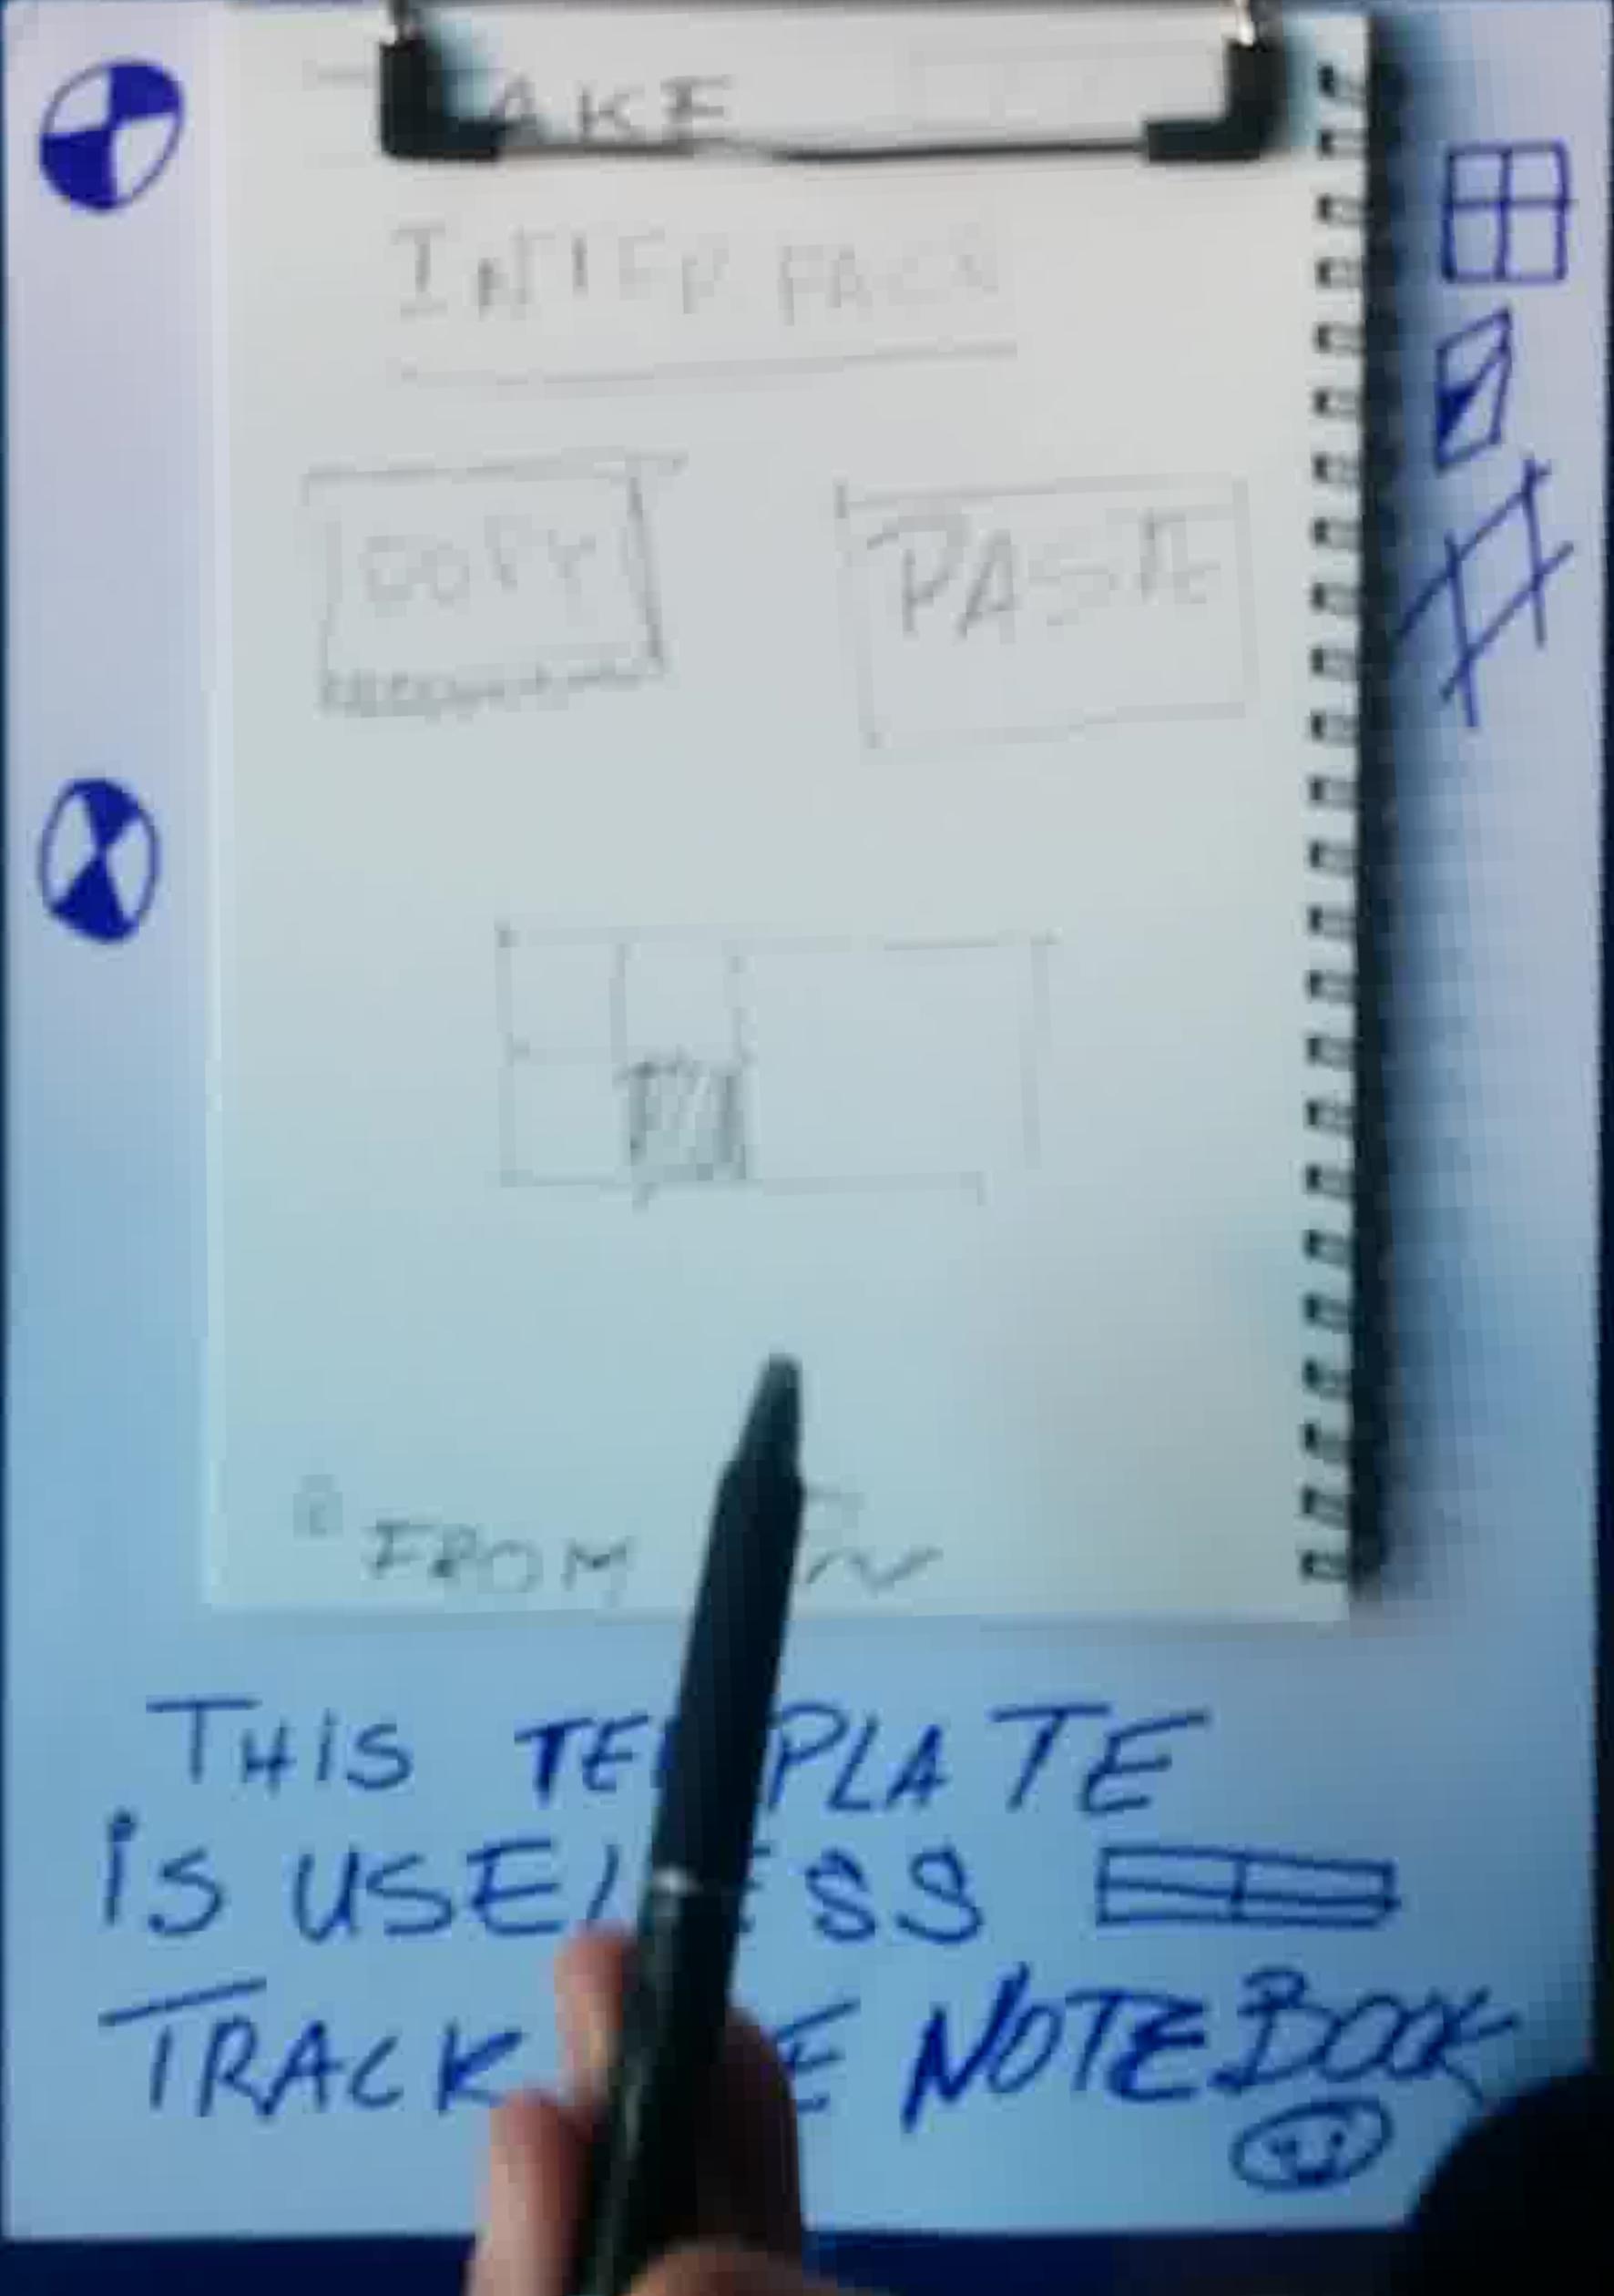 AKE
INTERFACE
COPY PASTE
FROM
THIS TEMPLATE
iS USELESS
TRACK NOTEBOOK